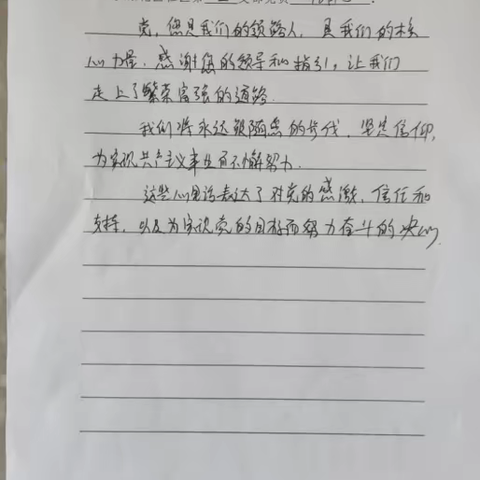 党，您是我们的领路人，是我们的核
心力量，感谢您的领导和指引，让我们
走上了繁荣富强的道路.
我们将永远跟随您的步伐，坚定信仰，
为实现共产主义事业而不懈努力.
这些心里话表达了对党的感激，信任和
支持，以及为实现党的目标而努力奋斗的决心.